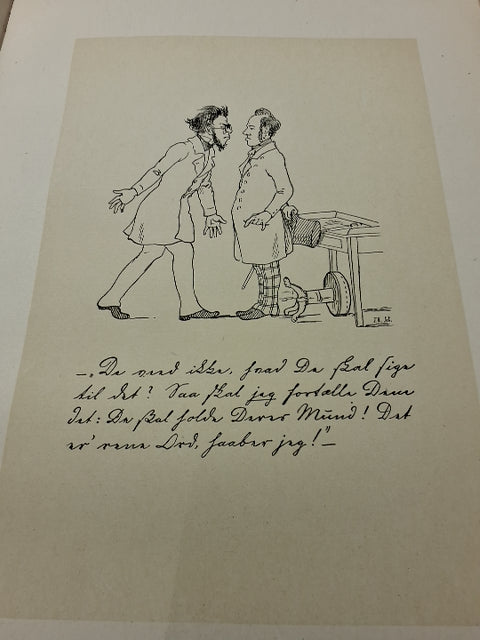 —„De veed ikke, hvad De skal sige
til det? Saa skal jeg fortælle Dem
det: De skal holde Deres Mund! Det
er' rene Ord, haaber jeg!"—